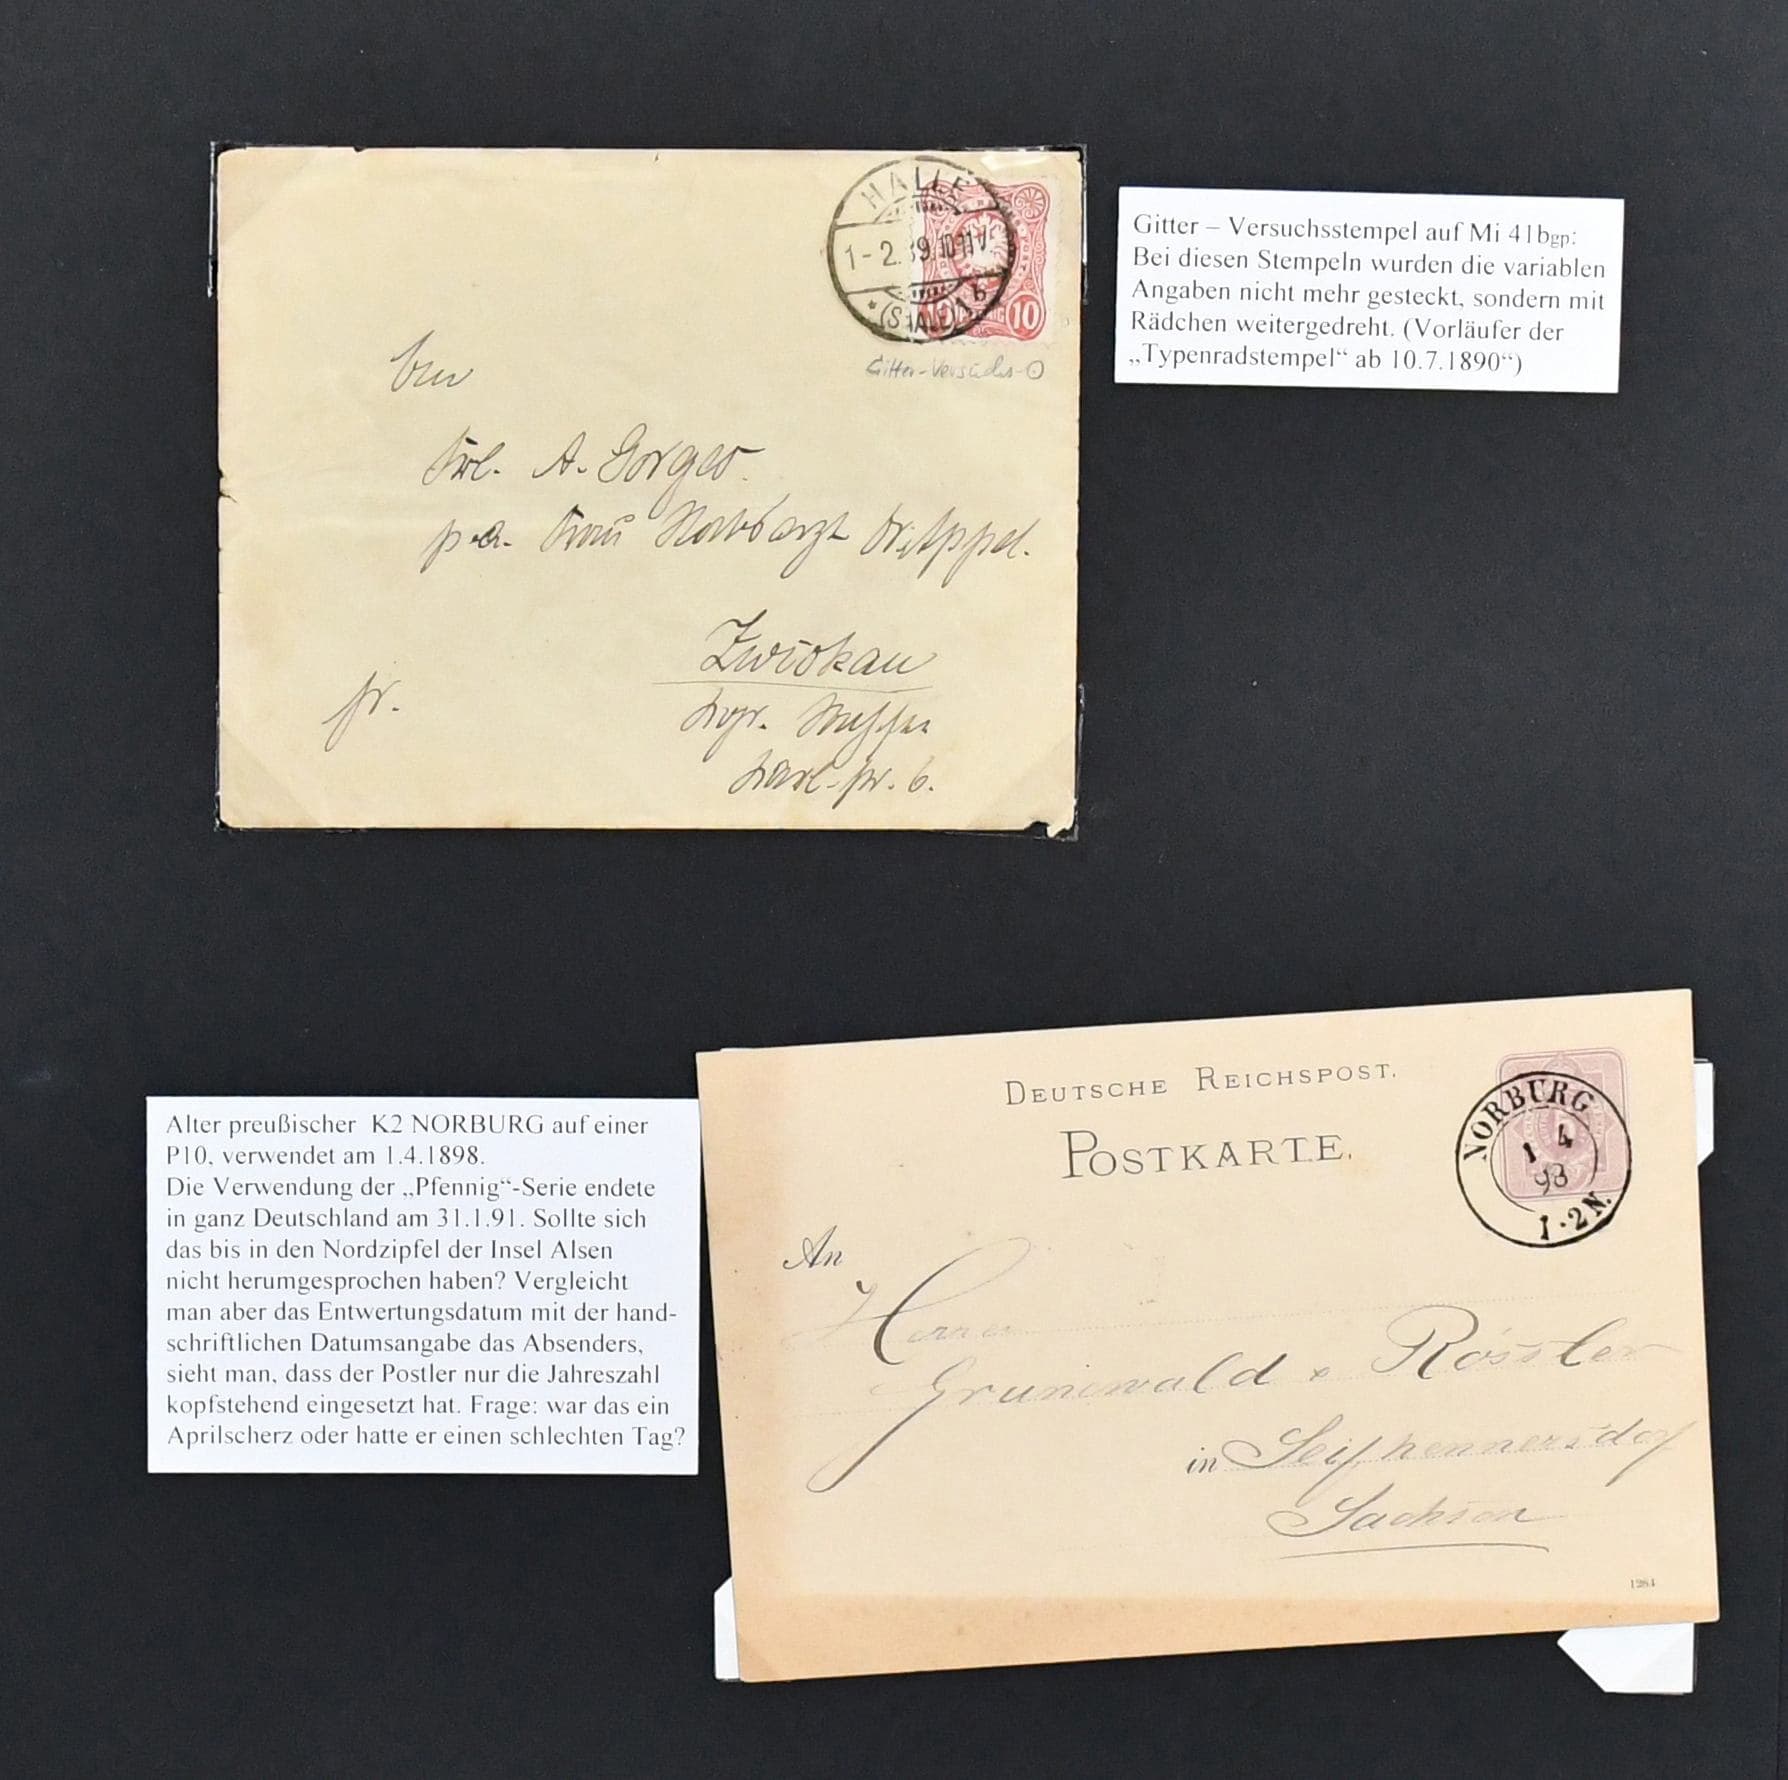 HALLE
1-2.89.10-11V.
* (SAALE) 1b
10
Gitter-Versuchs-
Frl. A. Gorges.
p.a. Frau
Zwickau
6.
Gitter – Versuchsstempel auf Mi 41bgp:
Bei diesen Stempeln wurden die variablen
Angaben nicht mehr gesteckt, sondern mit
Rädchen weitergedreht. (Vorläufer der
„Typenradstempel“ ab 10.7.1890“)
Alter preußischer K2 NORBURG auf einer
P10, verwendet am 1.4.1898.
Die Verwendung der „Pfennig“-Serie endete
in ganz Deutschland am 31.1.91. Sollte sich
das bis in den Nordzipfel der Insel Alsen
nicht herumgesprochen haben? Vergleicht
man aber das Entwertungsdatum mit der hand-
schriftlichen Datumsangabe das Absenders,
sieht man, dass der Postler nur die Jahreszahl
kopfstehend eingesetzt hat. Frage: war das ein
Aprilscherz oder hatte er einen schlechten Tag?
DEUTSCHE REICHSPOST.
POSTKARTE.
NORBURG
1 4
98
1-2N.
An
Herren
Grunewald & Rössler
in Seifhennersdorf
Sachsen
1284